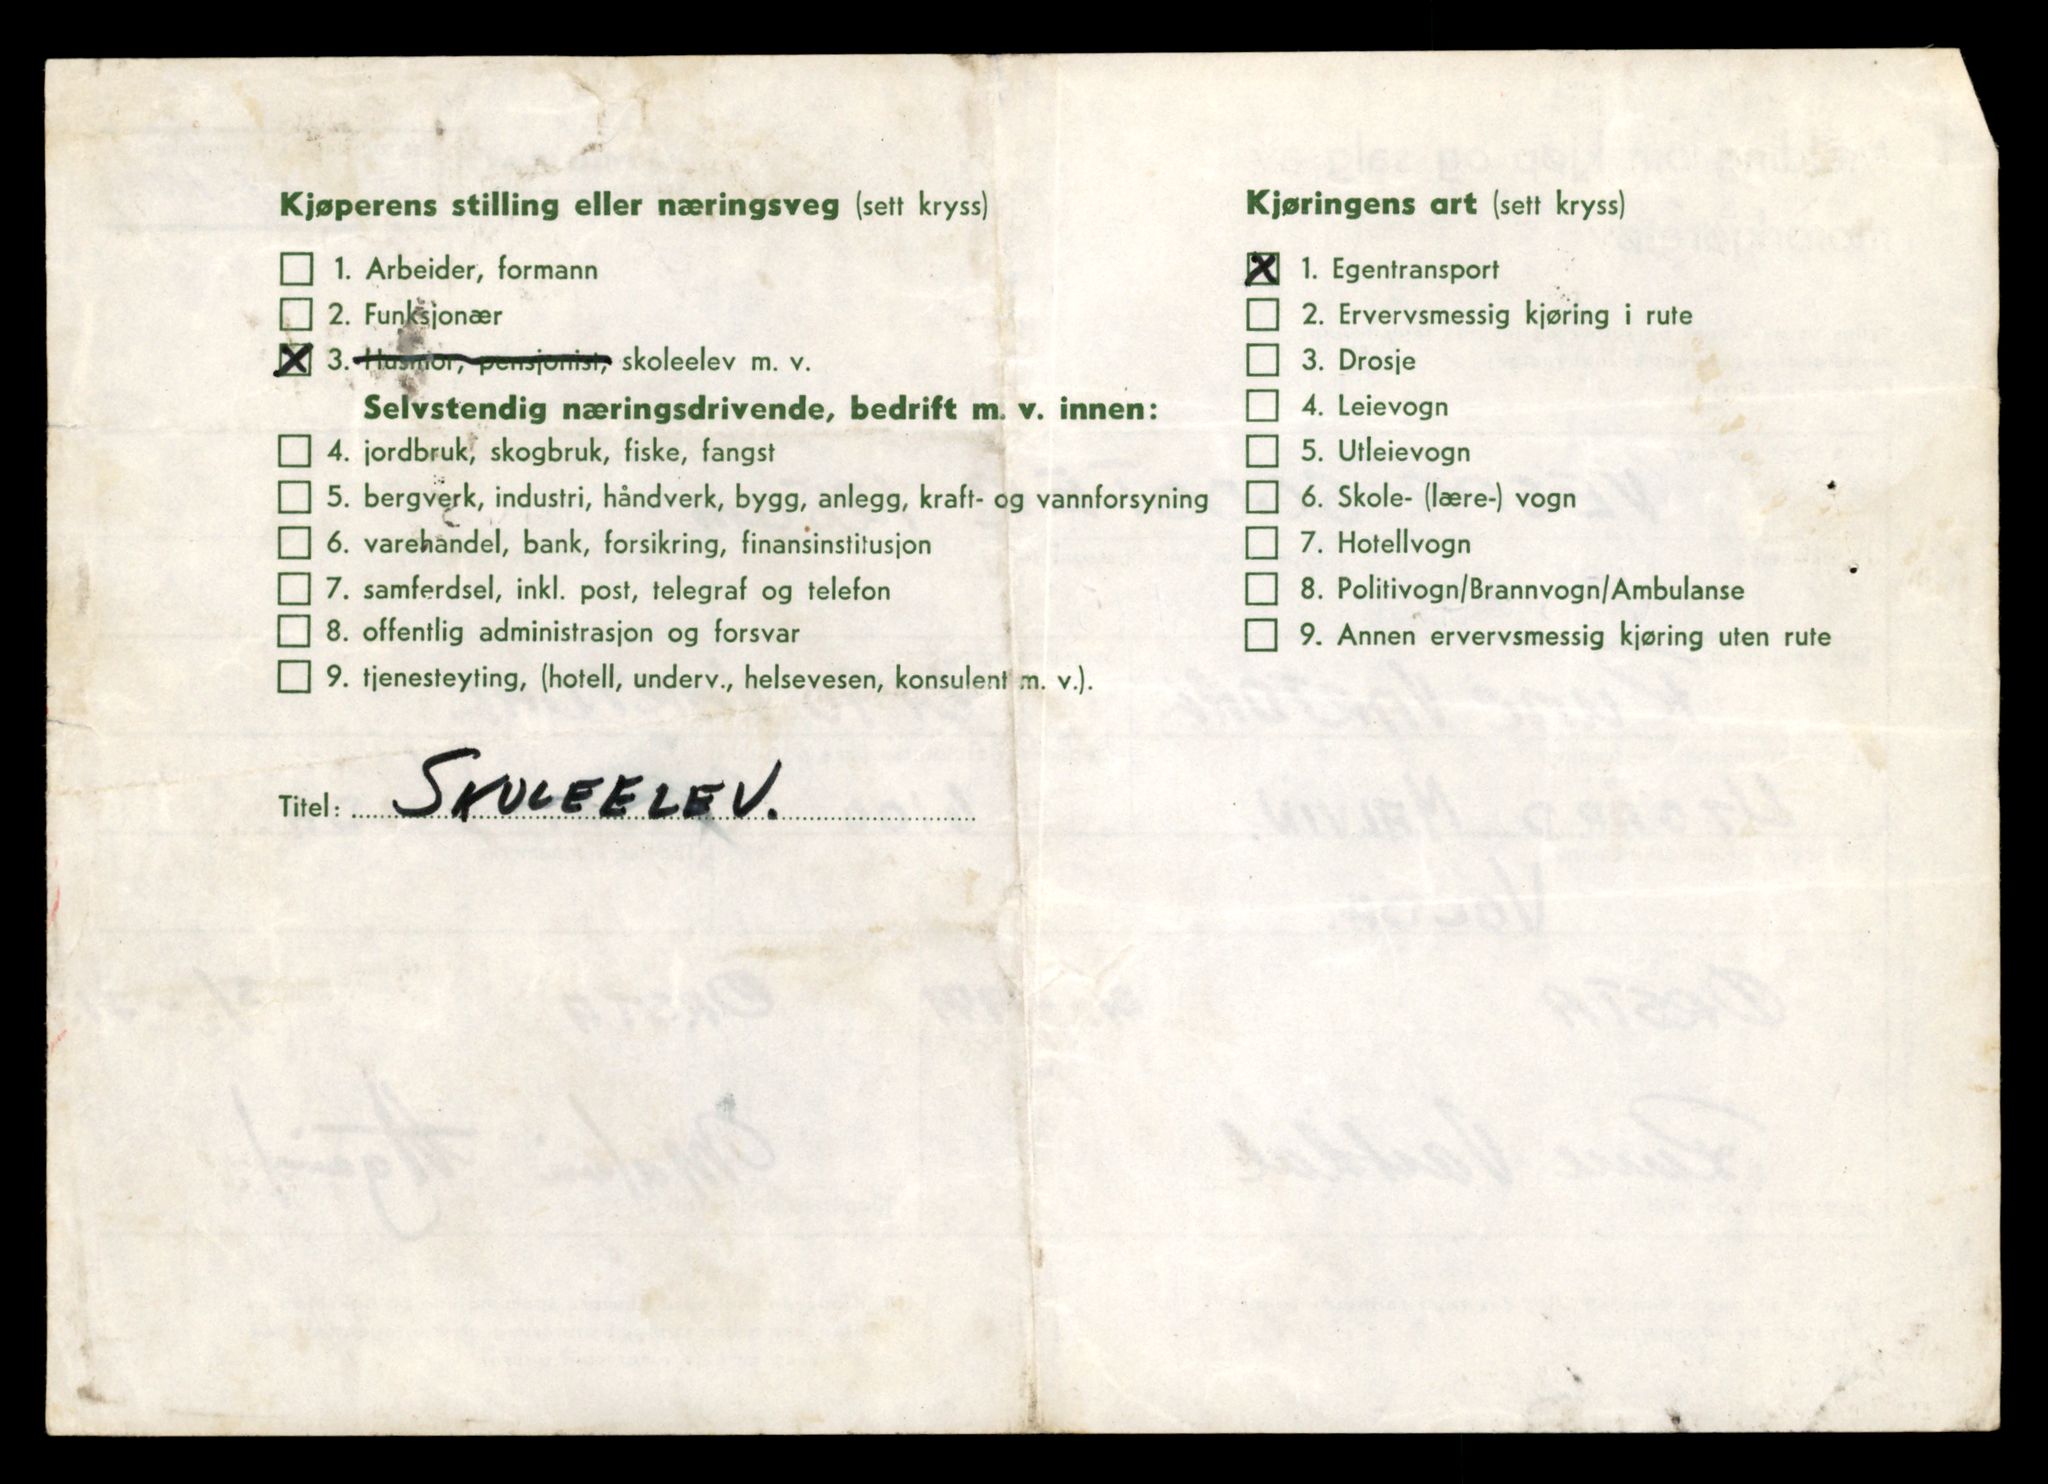 Kjøperens stilling eller næringsveg (sett kryss)
1. Arbeider, formann
2. Funksjonær
3. Husmor, pensjonist, skoleelev m. v.
Selvstendig næringsdrivende, bedrift m. v. innen:
4. jordbruk, skogbruk, fiske, fangst
5. bergverk, industri, håndverk, bygg, anlegg, kraft- og vannforsyning
6. varehandel, bank, forsikring, finansinstitusjon
7. samferdsel, inkl. post, telegraf og telefon
8. offentlig administrasjon og forsvar
9. tjenesteyting, (hotell, underv., helsevesen, konsulent m. v.).
Titel: SKULEELEV.
Kjøringens art (sett kryss)
1. Egentransport
2. Ervervsmessig kjøring i rute
3. Drosje
4. Leievogn
5. Utleievogn
6. Skole- (lære-) vogn
7. Hotellvogn
8. Politivogn/Brannvogn/Ambulanse
9. Annen ervervsmessig kjøring uten rute